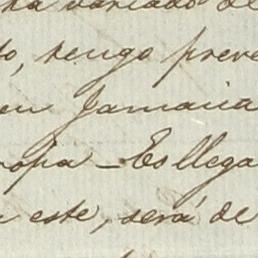 ha variado de
to, tengo preve
en Jamaica
ropa - Es llega
este, será de